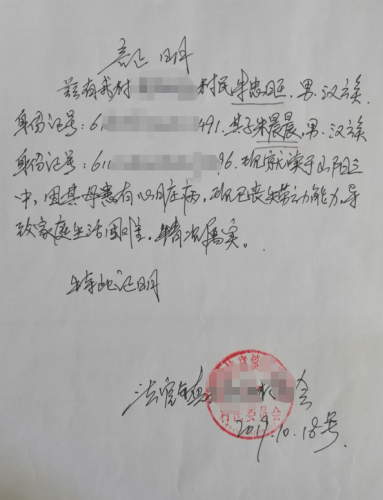 证明
兹有我村 村民朱忠旺,男,汉族
身份证号:61 491.其子朱晨晨,男,汉族
身份证号:611 96.现就读于山阳三
中,因其母患有心脏病,现已丧失劳动能力,导
致家庭生活困难,情况属实。
特此证明
法官 会
2019.10.18号